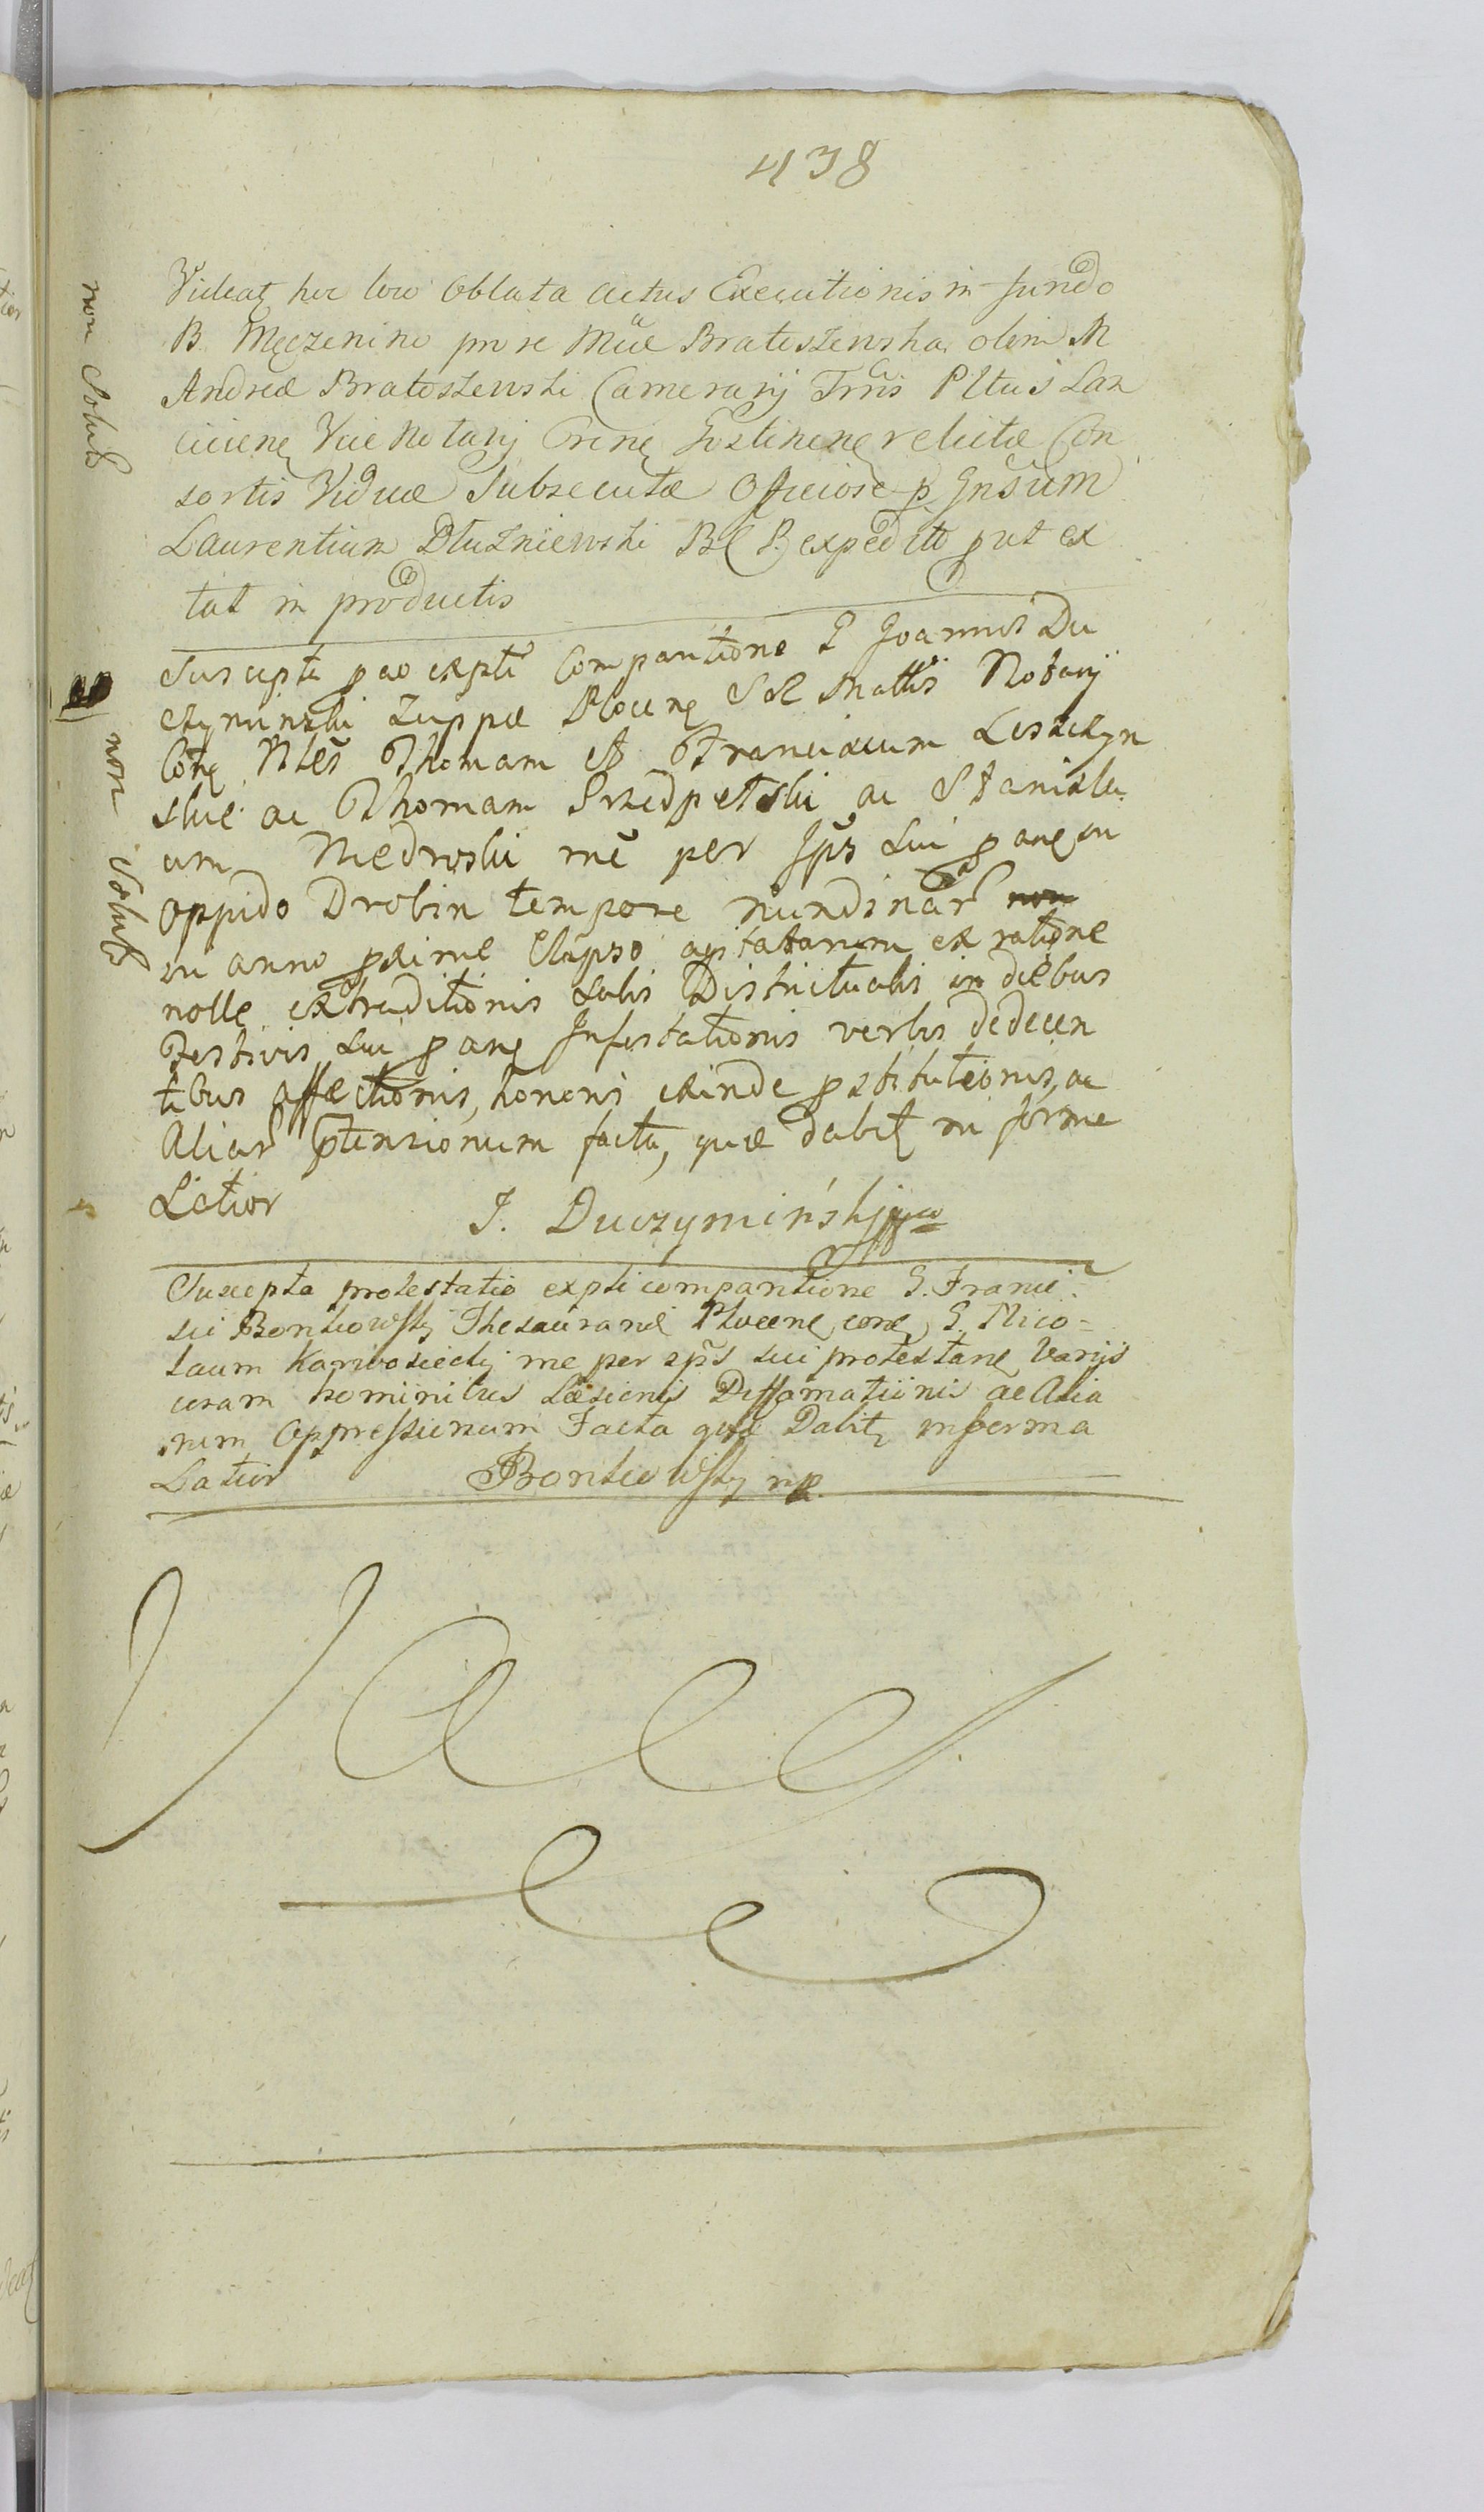 438
Videat hic loco Oblata Actus Executionis in fundo
B. Męczenino pro re Mᶜᵃᵉ Bratoszewska olim M
Andreæ Bratoszewski Camerarij Trris Pltus Lan
ciciene Vice Notarij Crene Gostinene relictæ Con
sortis Viduæ Subsecutæ Officiose p Gnsum
Laurentium Dłużniewski B(P.) expeditt put ex
tat in productis
Suscepta pao expti Comparitione G Joannis Du
czyminski Zuppæ Plocene S R Mattis Notarij
Cone Nles Thomam et Franciscum Leszczyn
skie ac Thomam Przedpełski ac Stanisla
um Nedroski me per Ips Sui p ane in
oppido Drobin tempore nundinar non
in anno pxime Elapso agitatarum ex ratione
nolle extraditionis Salis Districtualis in diebus
Festivis Sui p ane Infestationis verbis dedecen
tibus affectionis, honoris exinde pstitutionis, ac
Aliar ptensionum facta, quæ dabit in forma
Latior
J. Duczymiński
Suscepta protestatio expti comparitione G. Franci-
sci Bońkowsky Thesaurarie Plocene cone, G. Nico=
laum Karwosiecky me per eps sui protestane Varijs
coram hominibus Læsionis Diffamationis ac Alia
rum Oppressionum Facta quæ Dabit in forma
Latior
Bońkowsky mp.
non Solut
non Solut